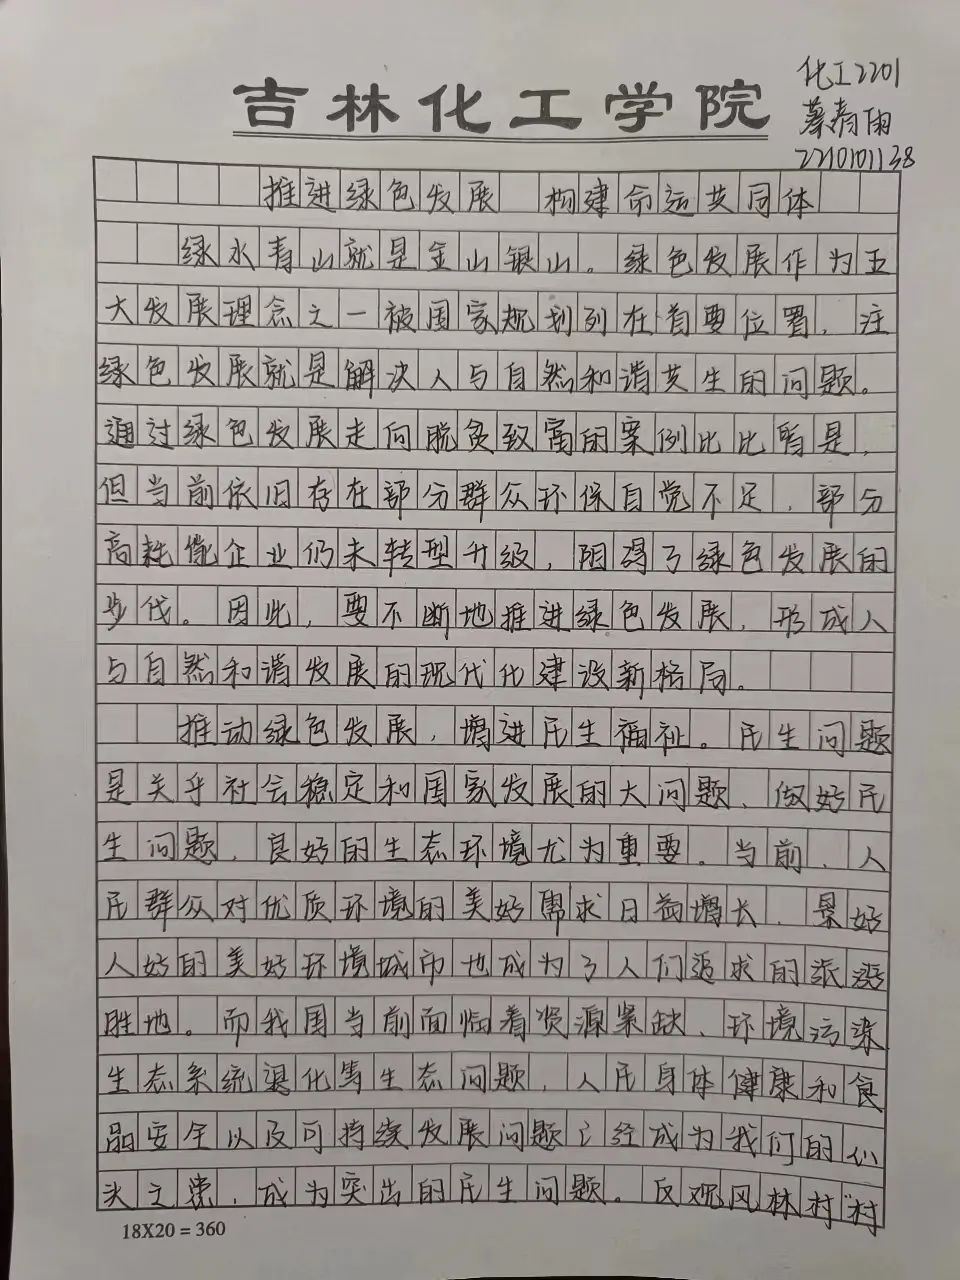 吉林化工学院
化工2201
蔡青雨
2210101138
推进绿色发展 构建命运共同体
绿水青山就是金山银山。绿色发展作为五
大发展理念之一被国家规划列在首要位置，注
绿色发展就是解决人与自然和谐共生的问题。
通过绿色发展走向脱贫致富的案例比比皆是，
但当前依旧存在部分群众环保自觉不足，部分
高耗能企业仍未转型升级，阻碍了绿色发展的
步伐。因此，要不断地推进绿色发展，形成人
与自然和谐发展的现代化建设新格局。
推动绿色发展，增进民生福祉。民生问题
是关乎社会稳定和国家发展的大问题、做好民
生问题，良好的生态环境尤为重要。当前，人
民群众对优质环境的美好需求日益增长，景好
人好的美好环境城市也成为了人们追求的
胜地。而我国当前面临着资源紧缺、环境污染
生态系统退化等生态问题，人民身体健康和食
品安全以及可持续发展问题已经成为我们的心
头之患，成为突出的民生问题。反观风林村“村
18X20=360